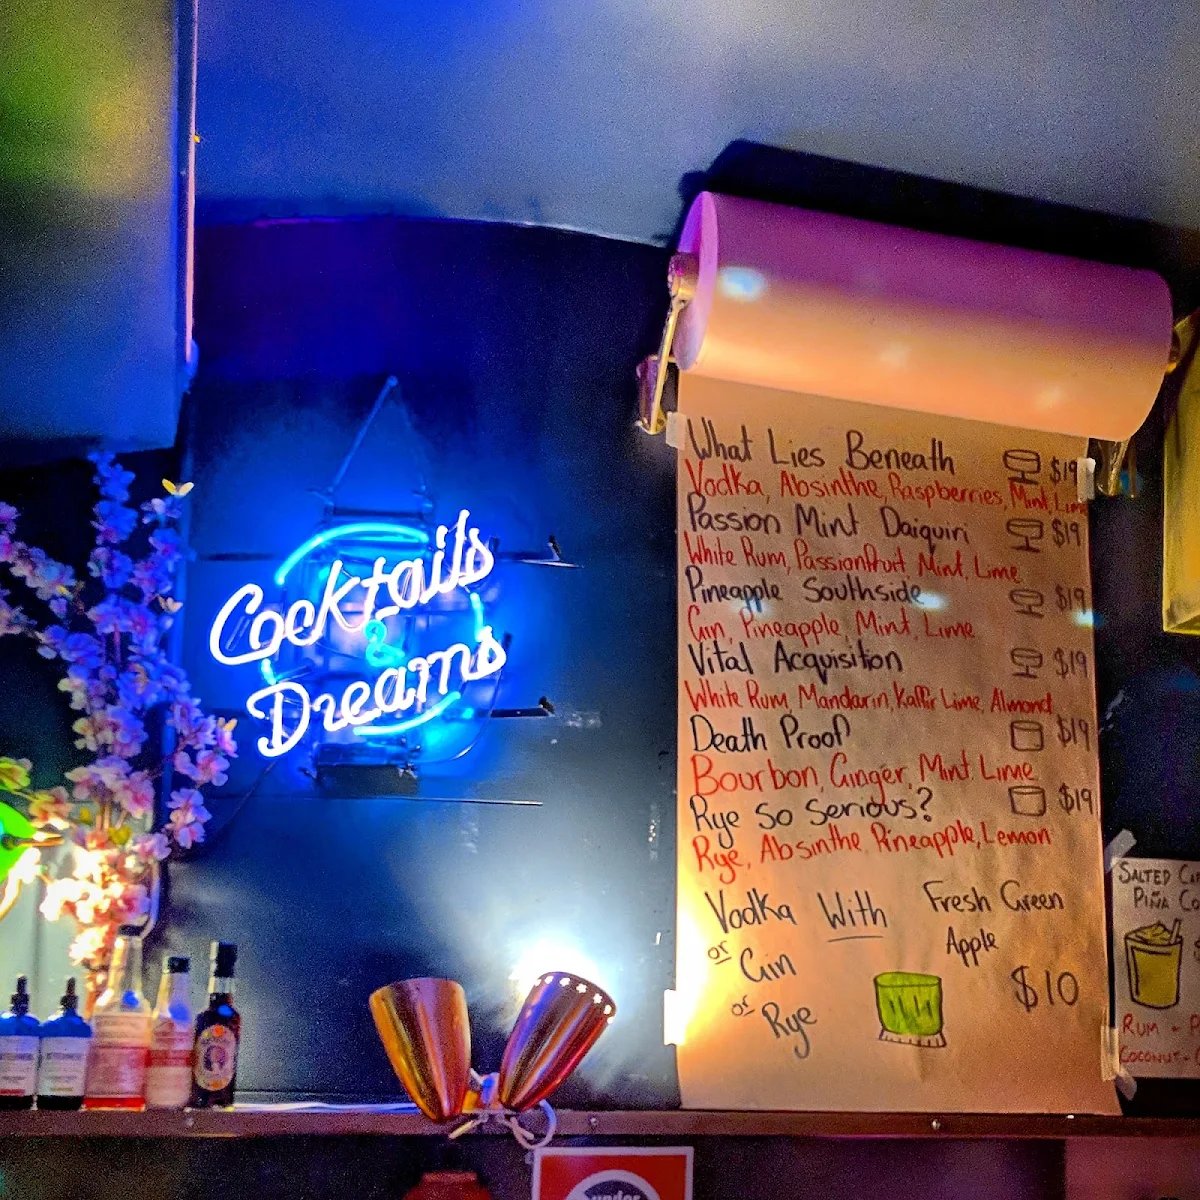 Cocktails
&
Dreams
What Lies Beneath $19
Vodka, Absinthe, Raspberries, Mint, Lime
Passion Mint Daiquiri $19
White Rum, Passionfruit Mint, Lime
Pineapple Southside $19
Gin, Pineapple, Mint, Lime
Vital Acquisition $19
White Rum, Mandarin, Kaffir Lime, Almond
Death Proof $19
Bourbon, Ginger, Mint Lime
Rye So Serious? $19
Rye, Absinthe Pineapple, Lemon
Vodka With Fresh Green
or Gin Apple
or Rye $10
SALTED
PIÑA
RUM
COCONUT
under